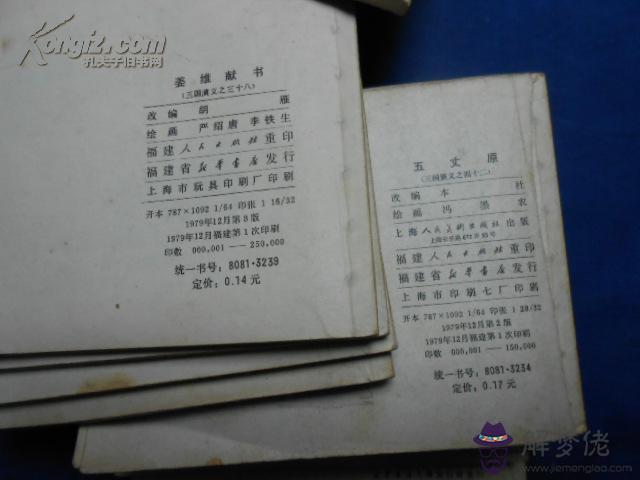 Kongfz.com
孔夫子旧书网
姜维献书
(三国演义之三十八)
改编 胡雁
绘画 严绍唐 李铁生
福建人民出版社重印
福建省新华书店发行
上海市玩具印刷厂印刷
开本 787×1092 1/64 印张 1 16/32
1979年12月第3版
1979年12月福建第1次印刷
印数 000,001——250,000
统一书号: 8081·3239
定价: 0.14 元
五丈原
(三国演义之四十二)
改编 本社
绘画 冯墨农
上海人民美术出版社出版
上海长乐路672弄33号
福建人民出版社重印
福建省新华书店发行
上海市印刷七厂印刷
开本 787×1092 1/64 印张 1 28/32
1979年12月第2版
1979年12月福建第1次印刷
印数 000,001——150,000
统一书号: 8081·3234
定价: 0.17元
解梦佬
www.jiemenglao.com